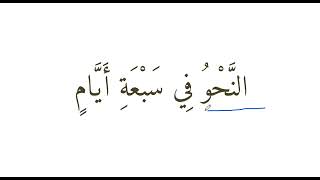 النَّحْوُ فِي سَبْعَةِ أَيَّامٍ